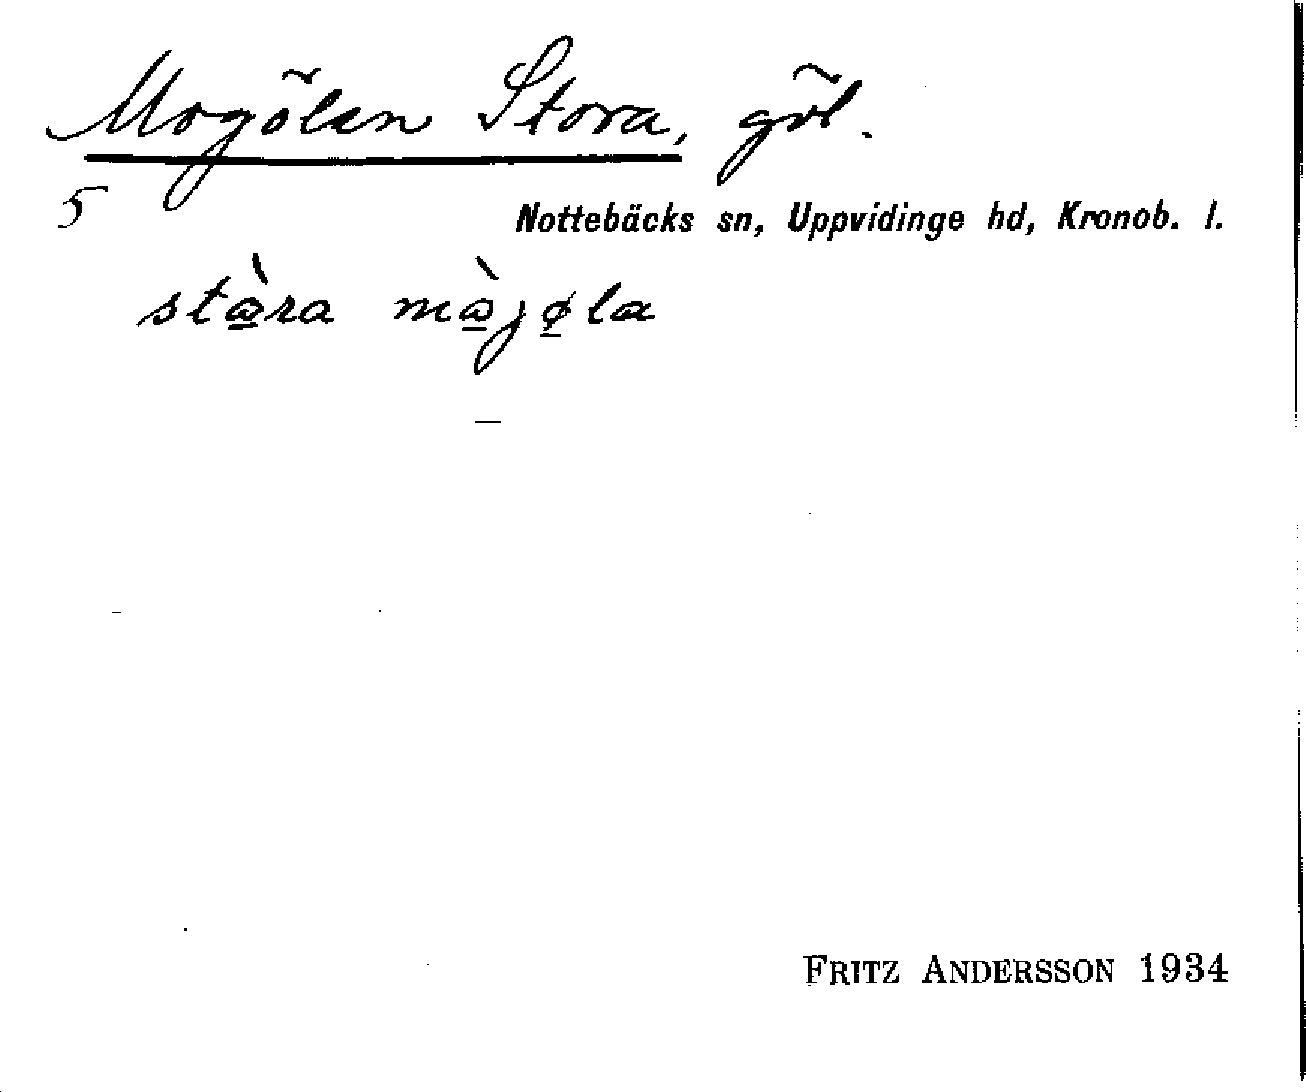 Mogölen Stora, göl.
5
Nottebäcks sn, Uppvidinge hd, Kronob. l.
stὼ̲ra mὼ̲jø̲la
FRITZ ANDERSSON 1934